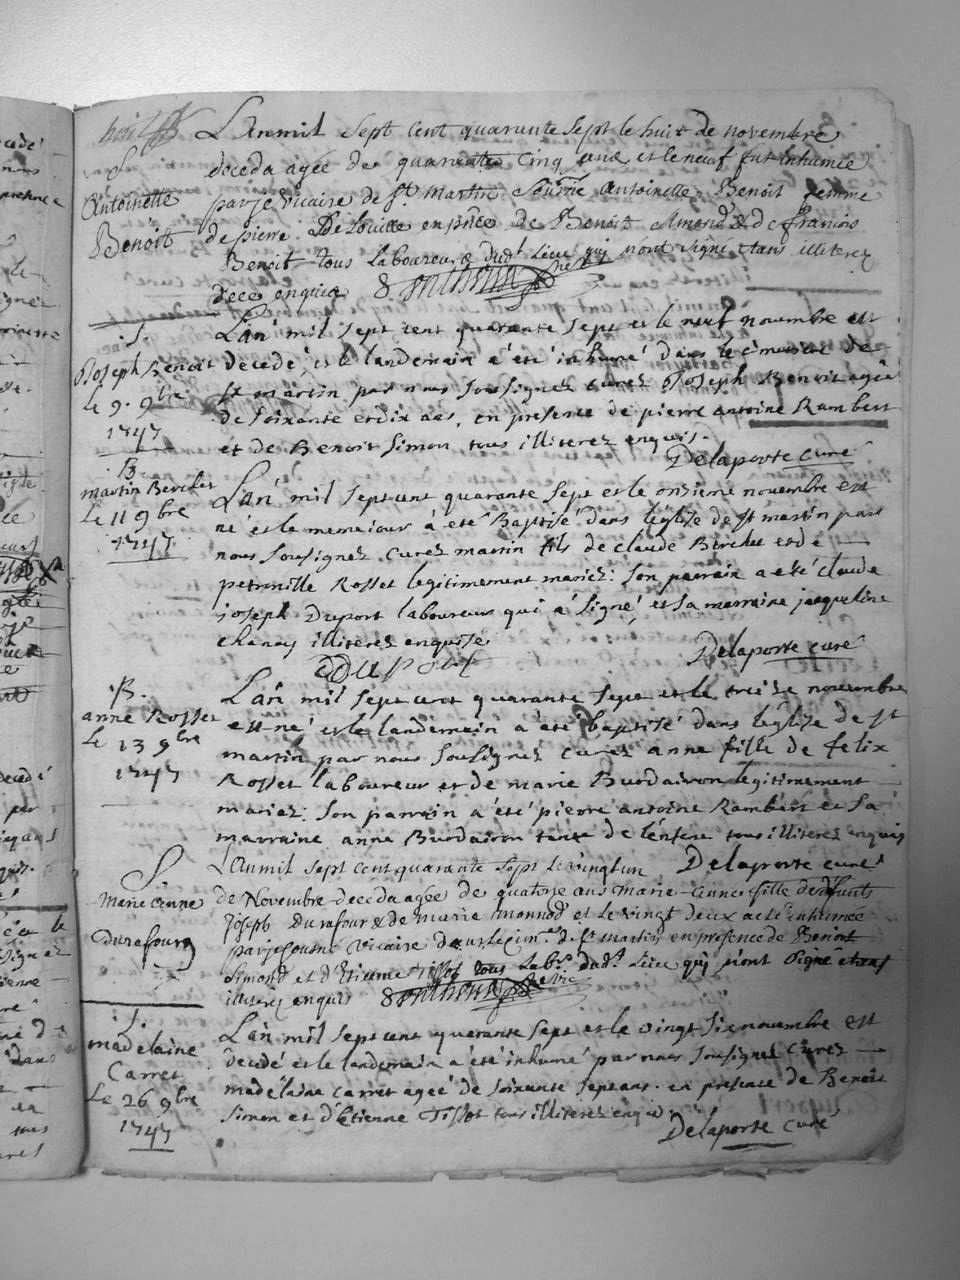 huit
L'An mil sept cent quarante sept le huit de novembre
S
deceda agée de quarante cinq ans et le neuf fut inhumée
Antoinette
par je vicaire de St Martin Antoinette Benoit femme
Benoit
de pierre Delouille en pnce de Benoit Simond & de francois
Benoit tous laboureurs dudt Lieu qui nont signé etans illiterez
dece enquis
S
L'an mil sept cent quarante sept et le neuf novembre est
Joseph Benoit
decedé, et le landemain a été inhumé dans le cimetiere de
le 9. 9bre
St martin par nous soussignez curez Joseph Benoit agé
1747
de soixante et dix ans, en presence de pierre antoine Rambert
et de Benoit Simon, tous illiterez enquis.
Delaporte curé
B
martin Berchet
L'an mil sept cent quarante sept et le onsieme novembre est
le 11 9bre
né et le meme jour à eté Baptisé dans léglise de St martin par
1747
nous soussignez curez martin fils de claude Berchet et de
petronille Rosset legitimement mariez: son parrain a eté claude
joseph Duport laboureur qui a signé, et sa marraine jacqueline
chanay illiterez enquise
dduport
Delaporte curé
B.
L'an mil sept cent quarante sept et le treize novembre
anne Rosset
est né et le landemain à eté baptisé dans léglise de St
le 13 9bre
martin par nous soussignez curez anne fille de felix
1747
Rosset laboureur et de marie Burdairon legitimement
mariez: son parrain a été pierre antoine Rambert et sa
marraine anne Burdairon tante de l'enfant tous illiterez enquis
Delaporte curé
S
L'An mil sept cent quarante sept le vingt un
Marie Anne
de Novembre deceda agée de quatorse ans marie Anne fille de defunts
Durafourg
Joseph Durafour & de Marie monnod et le vingt deux a eté inhumée
par je vicaire dans le cime de St martin en presence de Benoit
Simond et d'Etienne Tissot tous labrs dudt Lieu qui n'ont signé etans
illiterez enquis
S
L'an mil sept cent quarante sept et le vingt six novembre est
madelaine
decedé et le landemain a eté inhumé par nous soussignez curez
Carret
madelaine carret ageé de soixante sept ans. en presence de Benoit
Le 26 9bre
Simon et d'Etienne Tissot tous illiterez enquis
1747
Delaporte curé